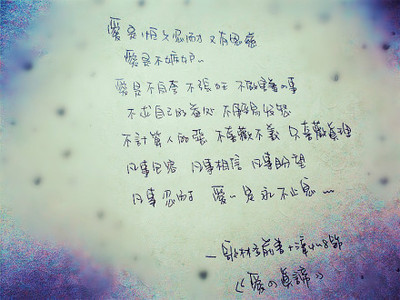 愛是恆久忍耐 又有恩慈
愛是不嫉妒…
愛是不自誇 不張狂 不做害羞の事
不求自己的益處 不輕易發怒
不計算人的惡 不喜歡不義 只喜歡真理
凡事包容 凡事相信 凡事盼望
凡事忍耐 愛…是永不止息…
—哥林多前書十三章4~8節
《愛の真諦》